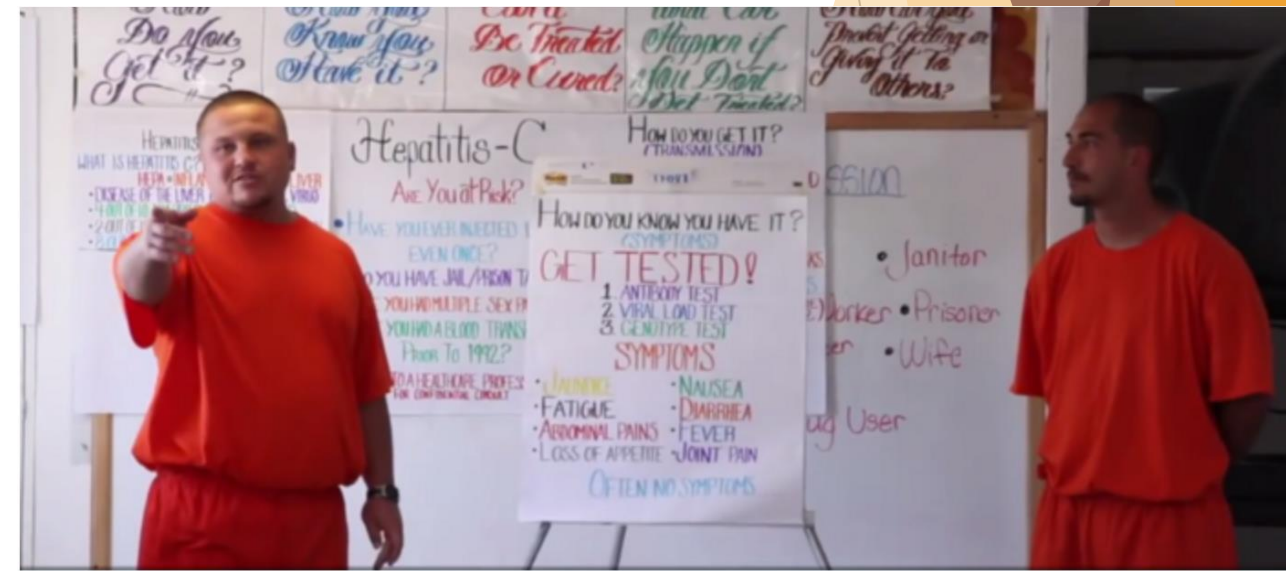 Do You
Get it?
Know You
Have it?
Be Treated
or Cured?
What Can
Happen if
You Dont
Get Treated?
Prevent Getting or
Giving it to
Others?
HEPATITIS
WHAT IS HEPATITIS C?
LIVER
• DISEASE OF THE LIVER
VIRUS
Hepatitis-C
ARE You at Risk?
• HAVE YOU EVER INJECTED
EVEN ONCE?
YOU HAVE JAIL/PRISON
YOU HAD MULTIPLE SEX
YOU HAD A BLOOD
PRIOR TO 1992?
TO A HEALTHCARE
FOR CONFIDENTIAL CONSULT
HOW DO YOU GET IT?
(TRANSMISSION)
HOW DO YOU KNOW YOU HAVE IT?
(SYMPTOMS)
GET TESTED!
1. ANTIBODY TEST
2. VIRAL LOAD TEST
3. GENOTYPE TEST
SYMPTOMS
• JAUNDICE
• FATIGUE
• ABDOMINAL PAINS
• LOSS OF APPETITE
• NAUSEA
• DIARRHEA
• FEVER
• JOINT PAIN
OFTEN NO SYMPTOMS
• Janitor
Worker • Prisoner
• Wife
User